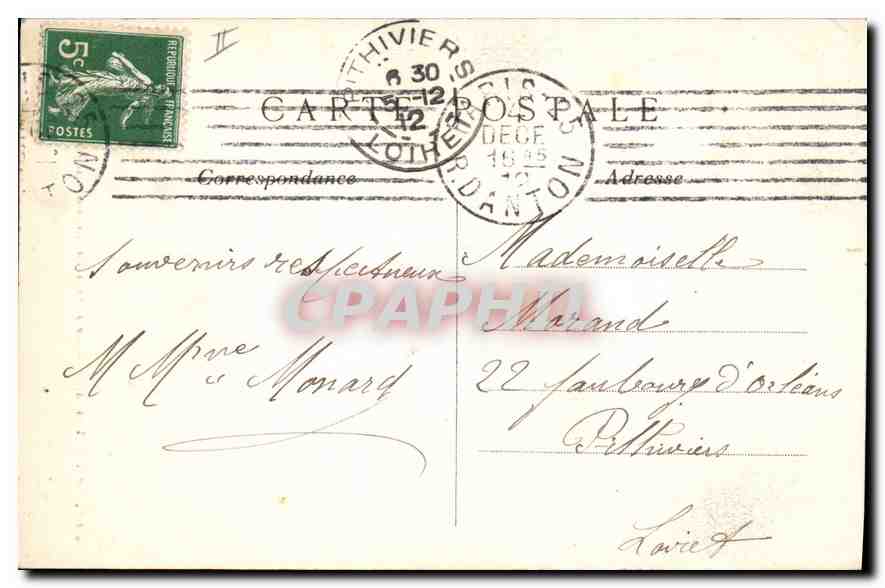 5c
REPUBLIQUE FRANCAISE
POSTES
II
PITHIVIERS
6 30
5-12
12
LOIRET
PARIS-25
4
DECE
12
R DANTON
CARTE POSTALE
Correspondance
Adresse
Souvenirs respectueux
M Mme Monard
Mademoiselle
Morand
22 faubourg d'Orléans
Pithiviers
Loiret
CPAPHIL